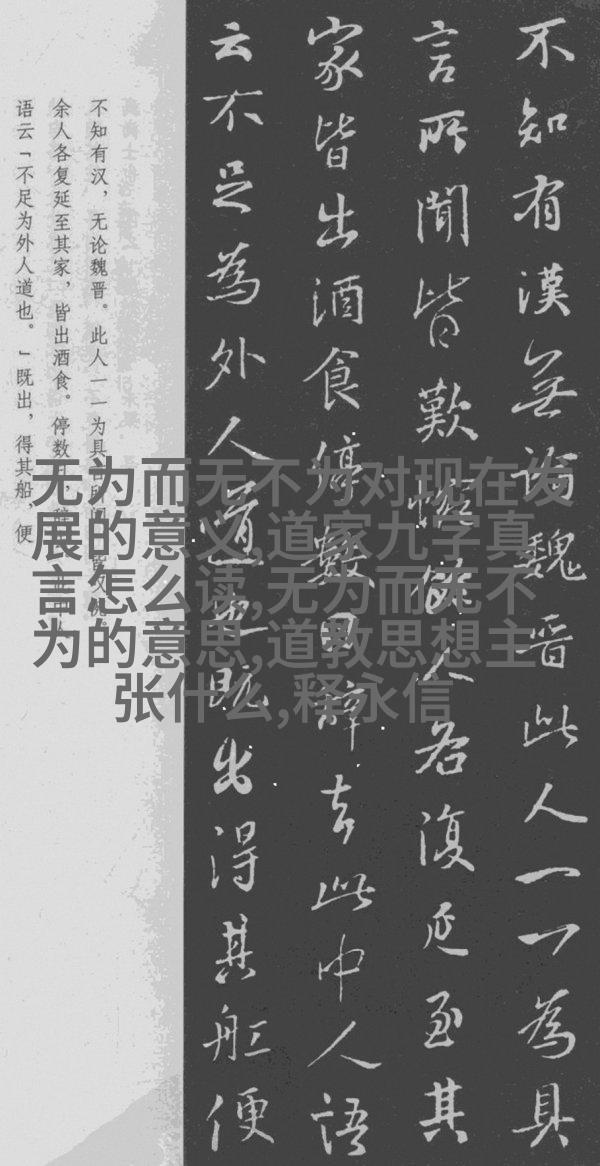 不知有漢無論魏晋此人一一為具
言所聞皆歎惋餘人各復延至其
家皆出酒食停數日辞去此中人語
云不足為外人道也既出得其舡便
不知有汉，无论魏晋。此人一一为具
余人各复延至其家，皆出酒食。停数
语云「不足为外人道也。」既出，得其船，便
无为而无不为对现在发
展的意义,道家九字真
言怎么读,无为而无不
为的意思,道教思想主
张什么,释永信